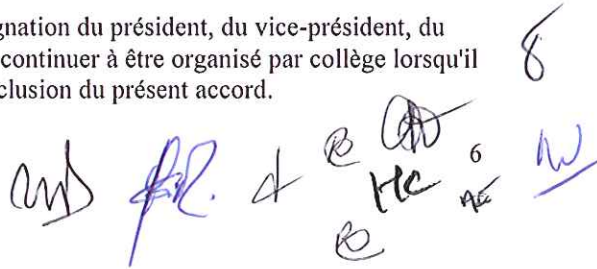 gnation du président, du vice-président, du
continuer à être organisé par collège lorsqu'il
clusion du présent accord.
HC
6